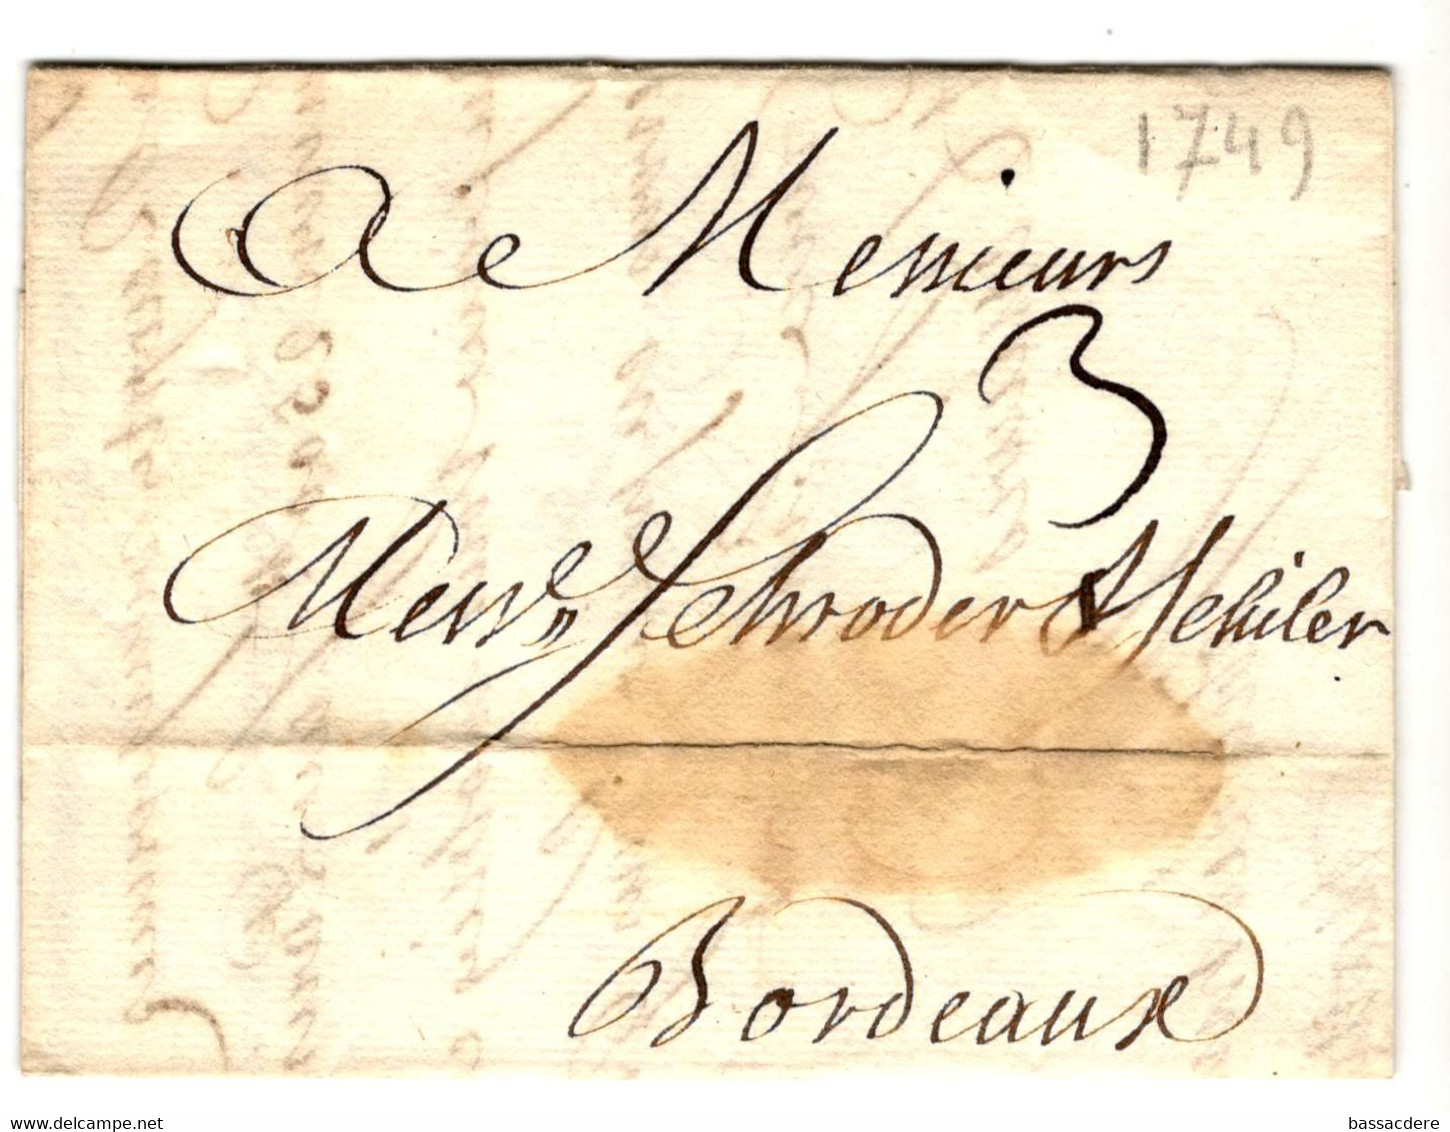 1749
A Messieurs
3
Mess.rs Schroder & Schiler
Bordeaux
www.delcampe.net
bassacdere